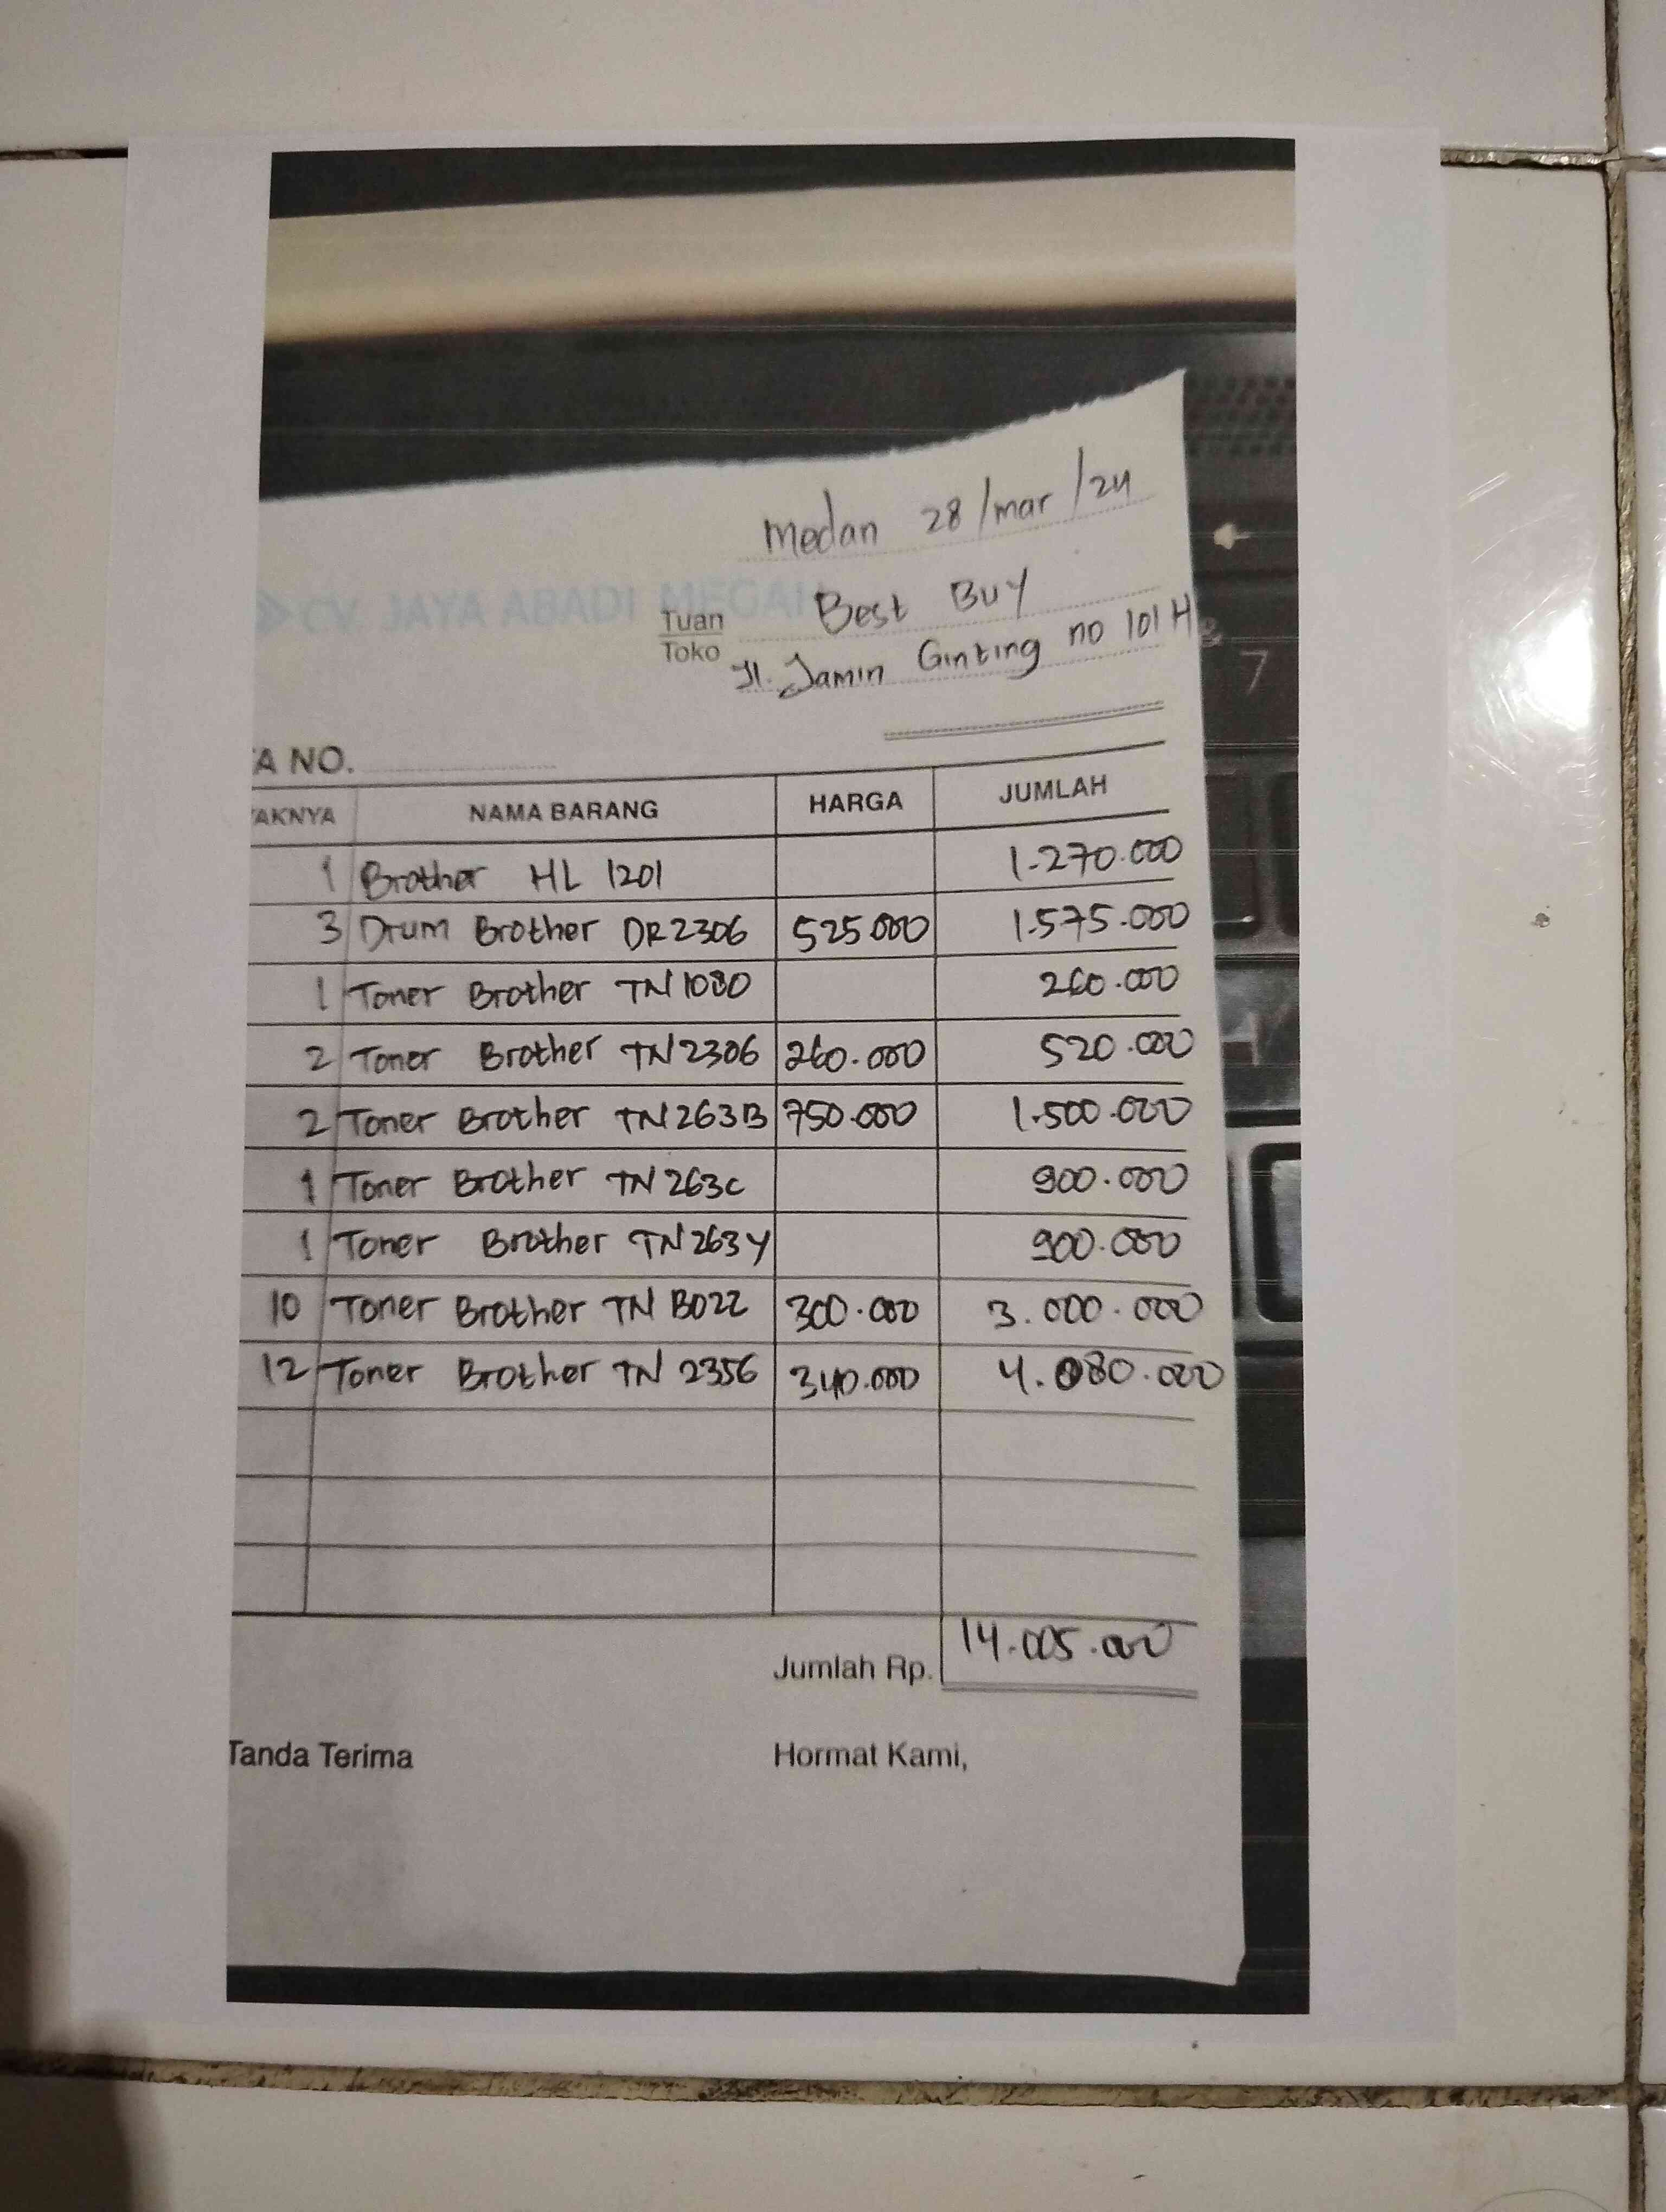 Medan 28/mar/24
CV. JAYA ABADI MEGAH
Tuan Best Buy
Toko Jl. Jamin Ginting no 101 H
A NO.
AKNYA NAMA BARANG HARGA JUMLAH
1 Brother HL 1201 1.270.000
3 Drum Brother DR2306 525.000 1.575.000
1 Toner Brother TN 1080 260.000
2 Toner Brother TN 2306 260.000 520.000
2 Toner Brother TN 263B 750.000 1.500.000
1 Toner Brother TN 263c 900.000
1 Toner Brother TN 263Y 900.000
10 Toner Brother TN B022 300.000 3.000.000
12 Toner Brother TN 2356 340.000 4.080.000
Jumlah Rp. 14.005.000
Tanda Terima Hormat Kami,
7